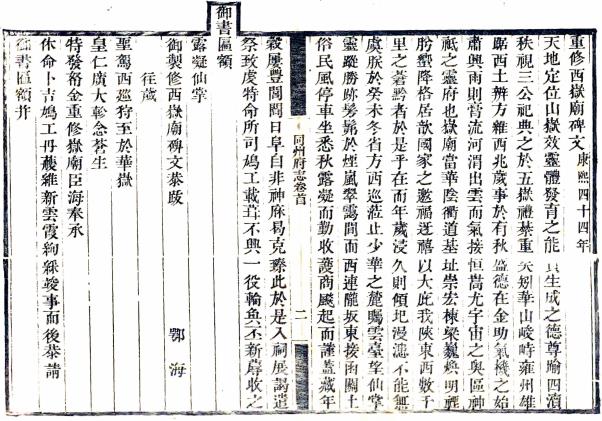 重修西嶽廟碑文 康熙四十四年
天地定位山嶽效靈體發育之能賛生成之德尊踰四瀆
秩視三公祀典之於五嶽禮綦重矣矧華山峻峙雍州雄
踞西土辨方維西兆歲事於有秋盛德在金助氣機之始
肅興雨則膏流河渭出雲而氣接恒嵩尤宇宙之奧區神
祗之靈府也嶽廟當華陰衝道基址崇宏棟梁巍煥明禋
肸蠁降格居歆國家之邀福迓禧以大庇我陝東西數千
里之蒼黔者於是乎在而年歲浸久則傾圯漫漶不能無
虞朕於癸未冬省方西巡蒞止少華之麓矚雲臺望仙掌
靈蹤勝跡髣髴於煙嵐翠靄間而西連隴坂東接函關土
俗民風停車坐悉秋露凝而勤收穫商飇起而謹蓋藏年
同州府志卷首
二
穀屢豐閭閻日阜自非神庥曷克臻此於是入祠展謁遣
祭致虔特命所司鳩工載葺不興一役輪奐丕新蓐收之
御書匾額
露凝仙掌
御製修西嶽廟碑文恭跋 鄂海
往歲
聖駕西巡狩至於華嶽
皇仁廣大軫念蒼生
特發帑金重修嶽廟臣海奉承
休命卜吉鳩工丹雘維新雲霞絢綵竣事而後恭請
御書匾額并